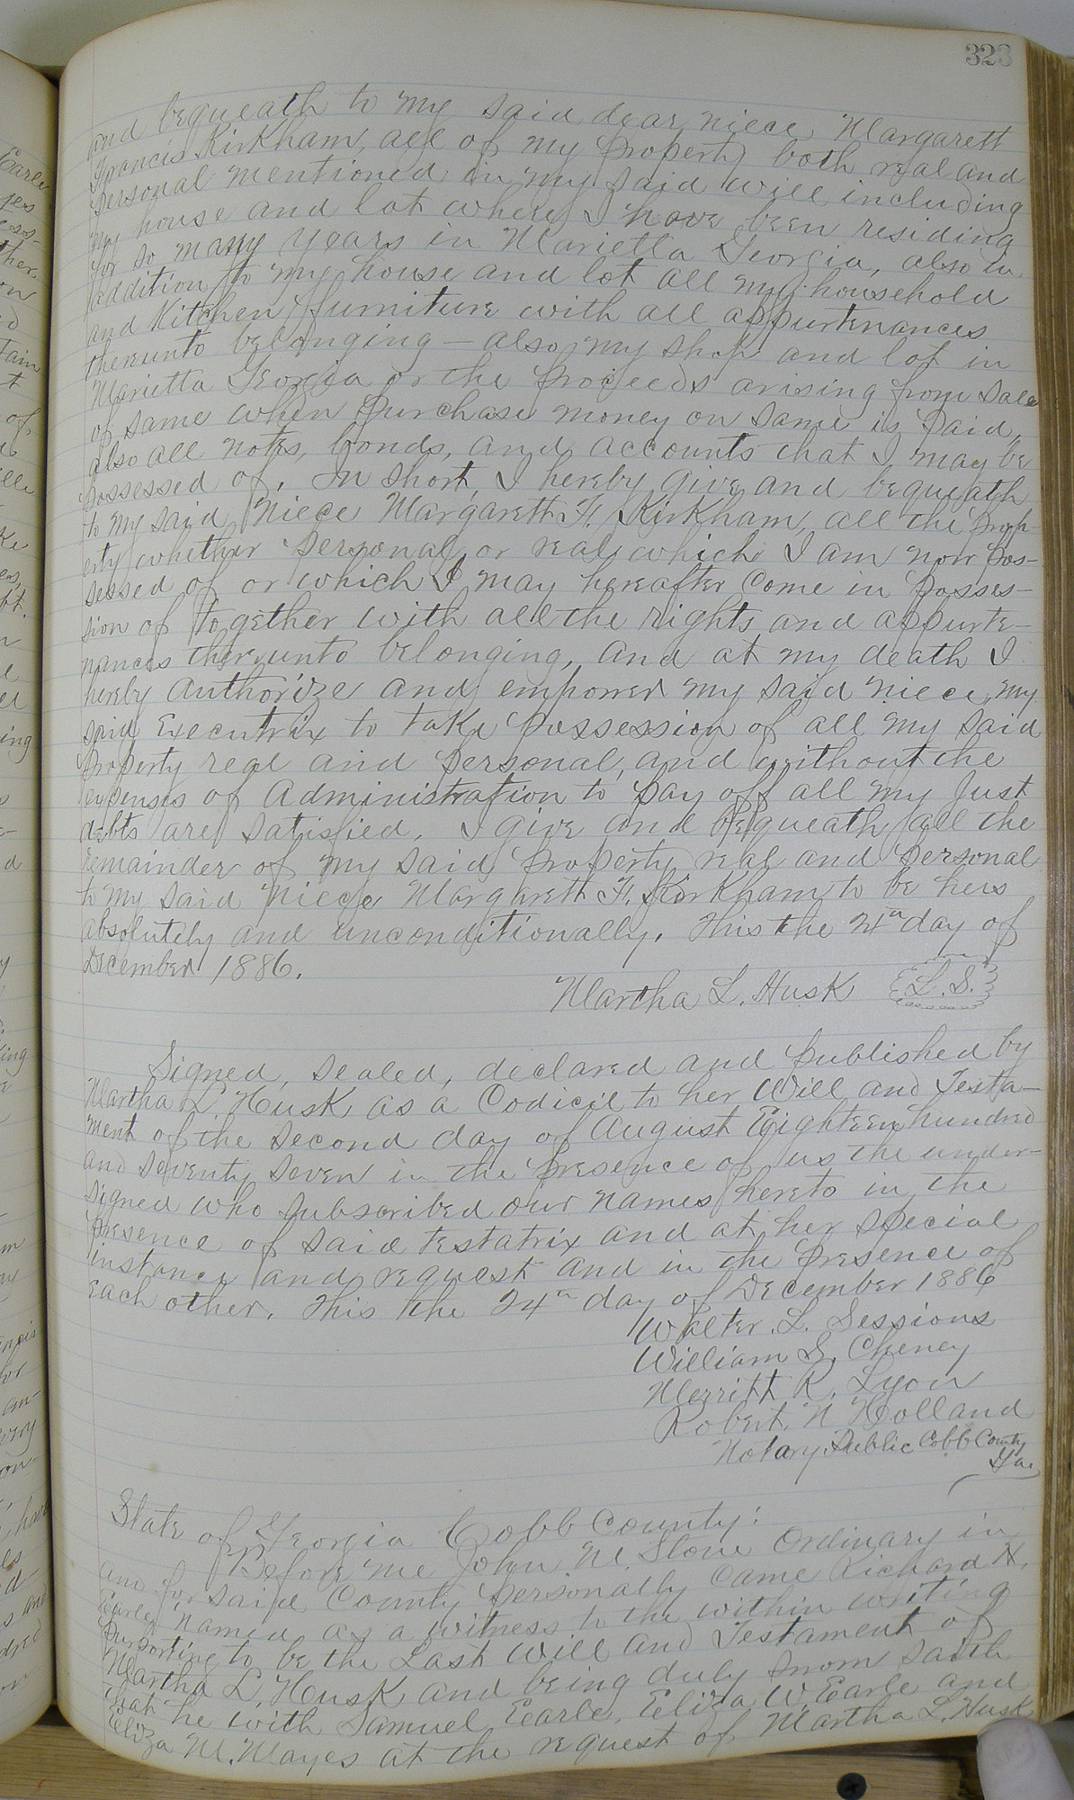 323
and bequeath to my said dear niece Margarett
Francis Kirkham, all of my property both real and
personal mentioned in my said will including
my house and lot where I have been residing
for so many years in Marietta Georgia, also in
addition to my house and lot all my household
and Kitchen furniture with all appurtenances
thereunto belonging - also my shop and lot in
Marietta Georgia or the proceeds arising from sale
of same when purchase money on same is paid,
also all notes, bonds, and accounts that I may be
possessed of. In short, I hereby give and bequeath
to my said Niece Margarett F. Kirkham all the prop-
erty whether personal or real which I am now pos-
sessed of or which I may hereafter come in posses-
sion of together with all the rights and appurte-
nances thereunto belonging, and at my death I
hereby authorize and empower my said niece, my
said Executrix to take possession of all my said
property real and personal, and without the
expenses of Administration to pay off all my Just
debts are satisfied. I give and bequeath all the
remainder of my said property real and personal
to my said Niece Margarett F. Kirkham to be hers
absolutely and unconditionally. This the 24th day of
December 1886.
Martha L. Husk L.S.
Signed, sealed, declared and published by
Martha L. Husk as a Codicil to her Will and Testa-
ment of the second day of August Eighteen hundred
and seventy seven in the presence of us the under-
signed who subscribed our names hereto in the
presence of said testatrix and at her special
instance and request and in the presence of
each other. This the 24th day of December 1886
Walter. L. Sessions
William S. Cheney
Merritt R. Lyon
Robert. N Holland
Notary Public Cobb County
Ga.
State of Georgia Cobb County:
Before me John M. Stone Ordinary in
and for said County personally came Richard H.
Earle named as a witness to the within writing
purporting to be the Last Will and Testament of
Martha L. Husk and being duly sworn saith
that he with Samuel Earle, Eliza W. Earle and
Eliza M. Mayes at the request of Martha L. Husk